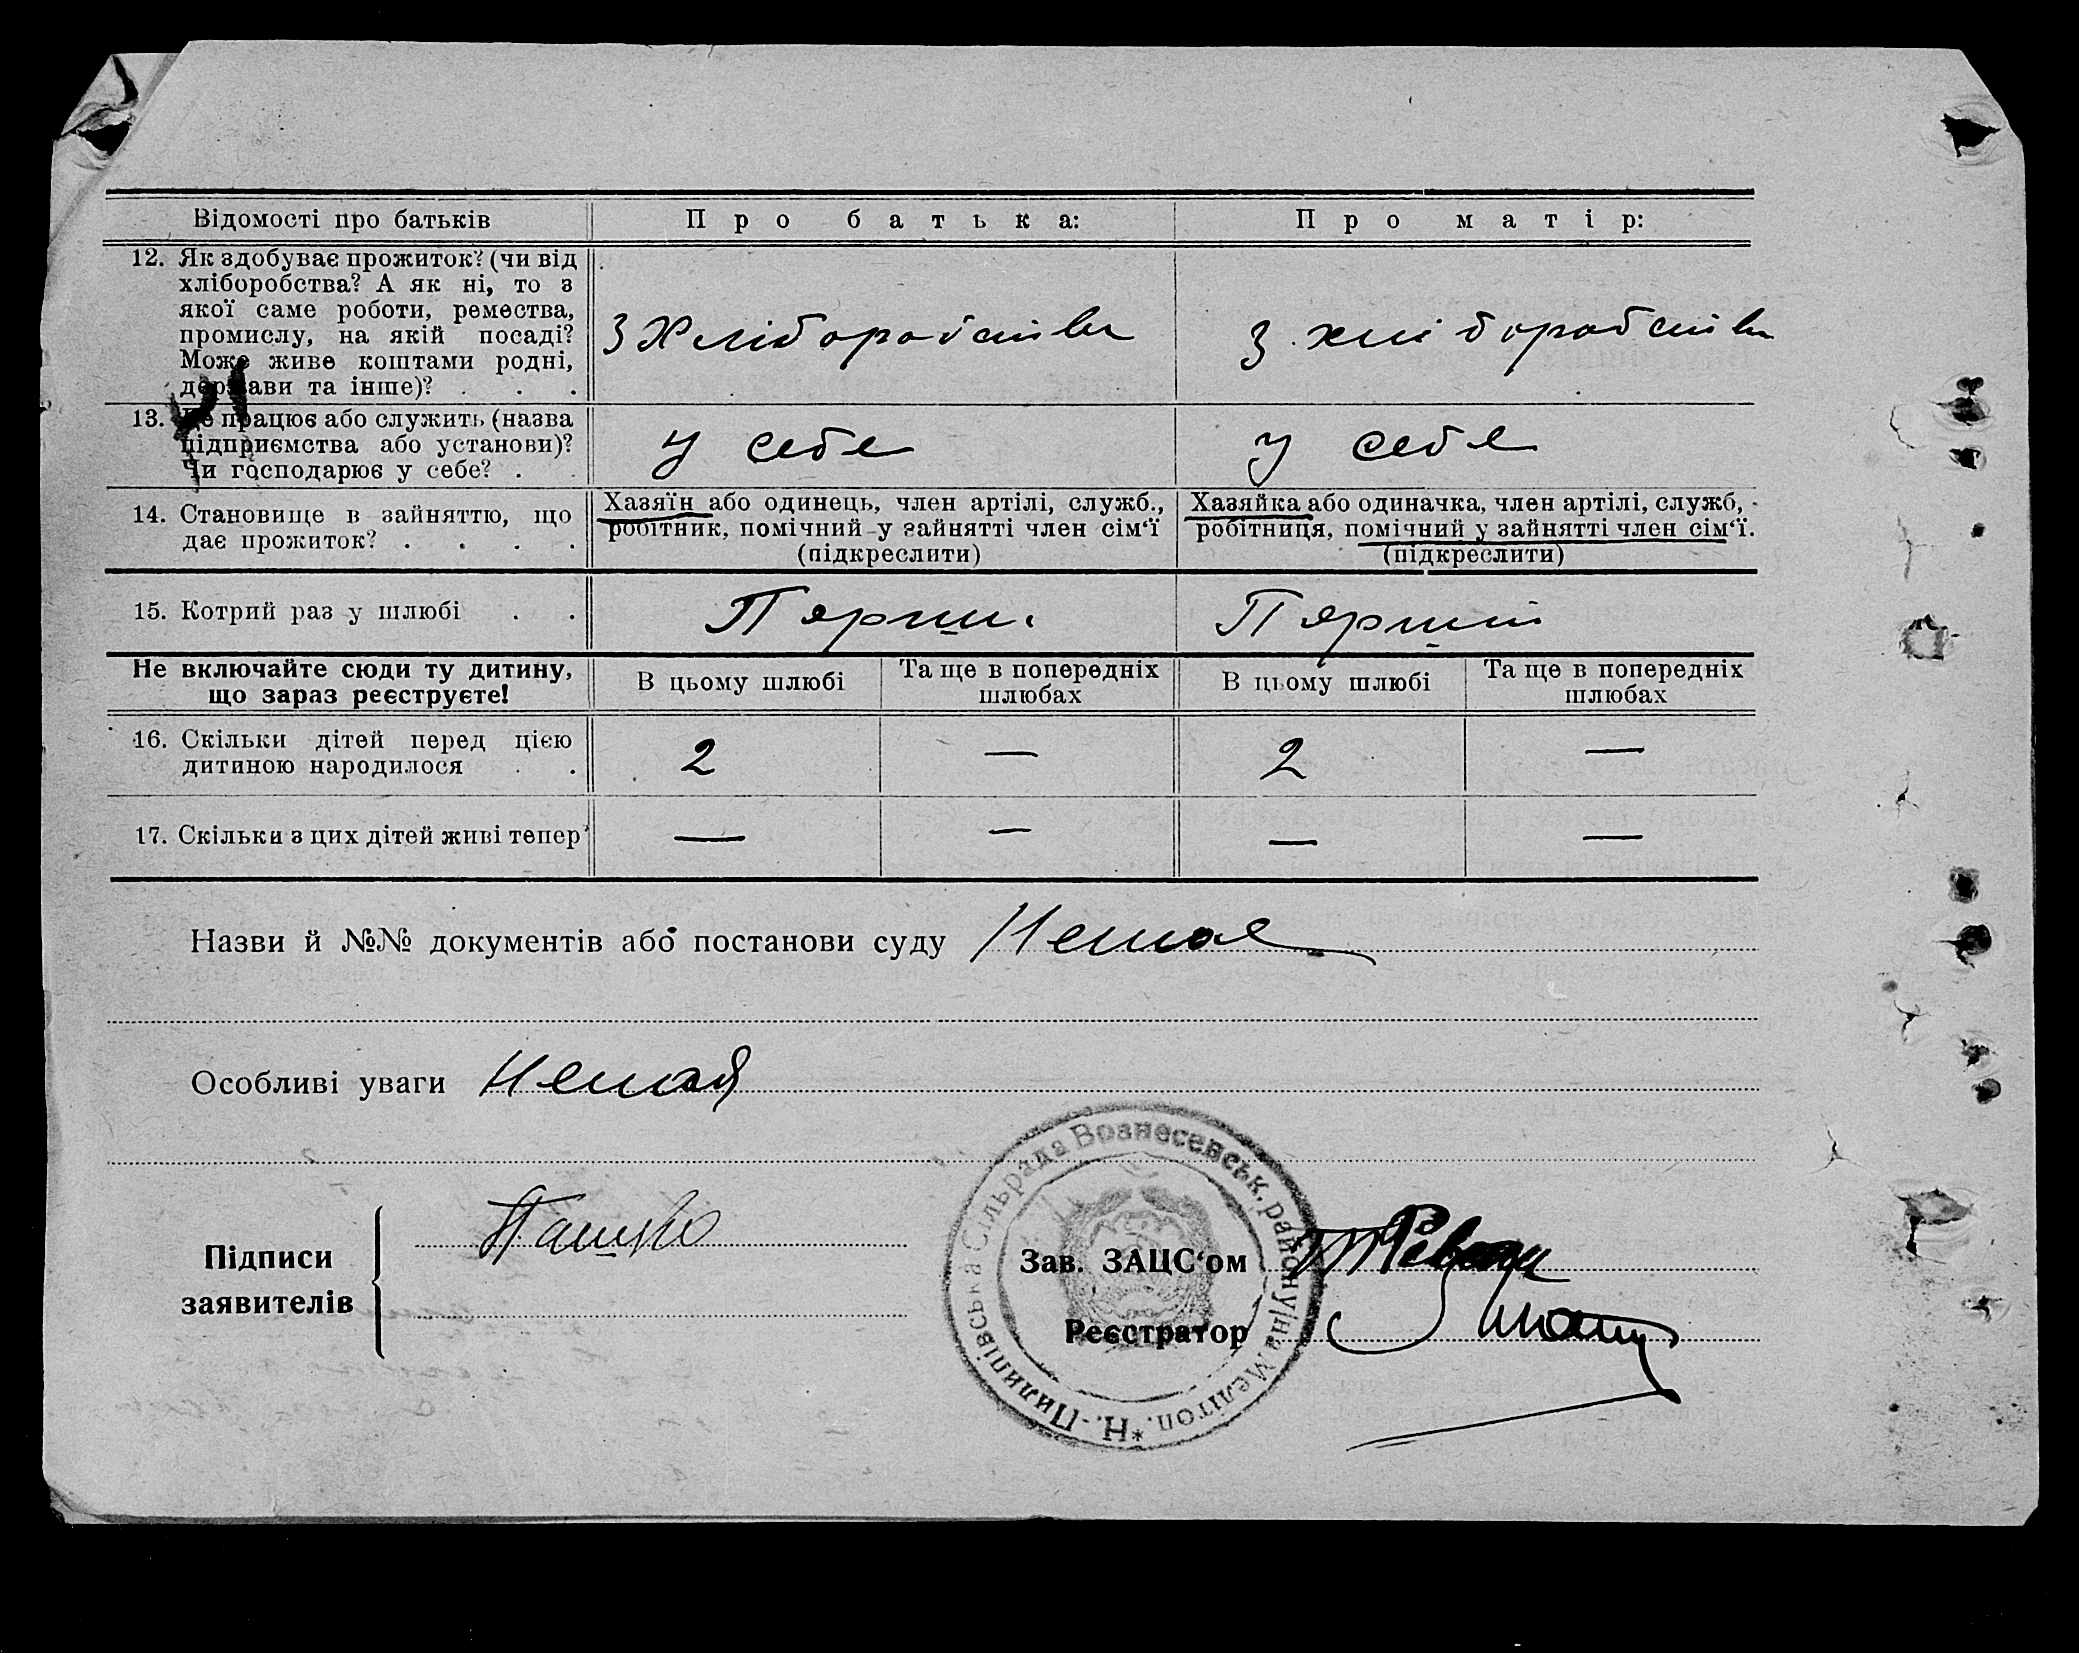 Відомості про батьків
Про батька:
Про матір:
12. Як здобуває прожиток? (чи від
хліборобства? А як ні, то з
якої саме роботи, ремества,
промислу, на якій посаді?
Може живе коштами родні,
держави та інше)? . . .
З Хліборобства
з хліборобства
13. Де працює або служить (назва
підприємства або установи)?
Чи господарює у себе? . .
у себе
у себе
14. Становище в зайняттю, що
дає прожиток? . . . .
Хазяїн або одинець, член артілі, служб.,
робітник, помічний у зайнятті член сім‘ї
(підкреслити)
Хазяйка або одиначка, член артілі, служб,
робітниця, помічний у зайнятті член сім‘ї.
(підкреслити)
15. Котрий раз у шлюбі . .
Перши.
Перший
Не включайте сюди ту дитину,
що зараз реєструєте!
В цьому шлюбі
Та ще в попередніх
шлюбах
В цьому шлюбі
Та ще в попередніх
шлюбах
16. Скільки дітей перед цією
дитиною народилося . .
2
—
2
—
17. Скільки з цих дітей живі тепер
—
—
—
—
Назви й №№ документів або постанови суду Немає
Особливі уваги Немая
Підписи
заявителів
Пашко
Зав. ЗАЦС‘ом
Реєстратор
*Н.-Пилипівська Сільрада Вознесенськ. району на Мелітоп.